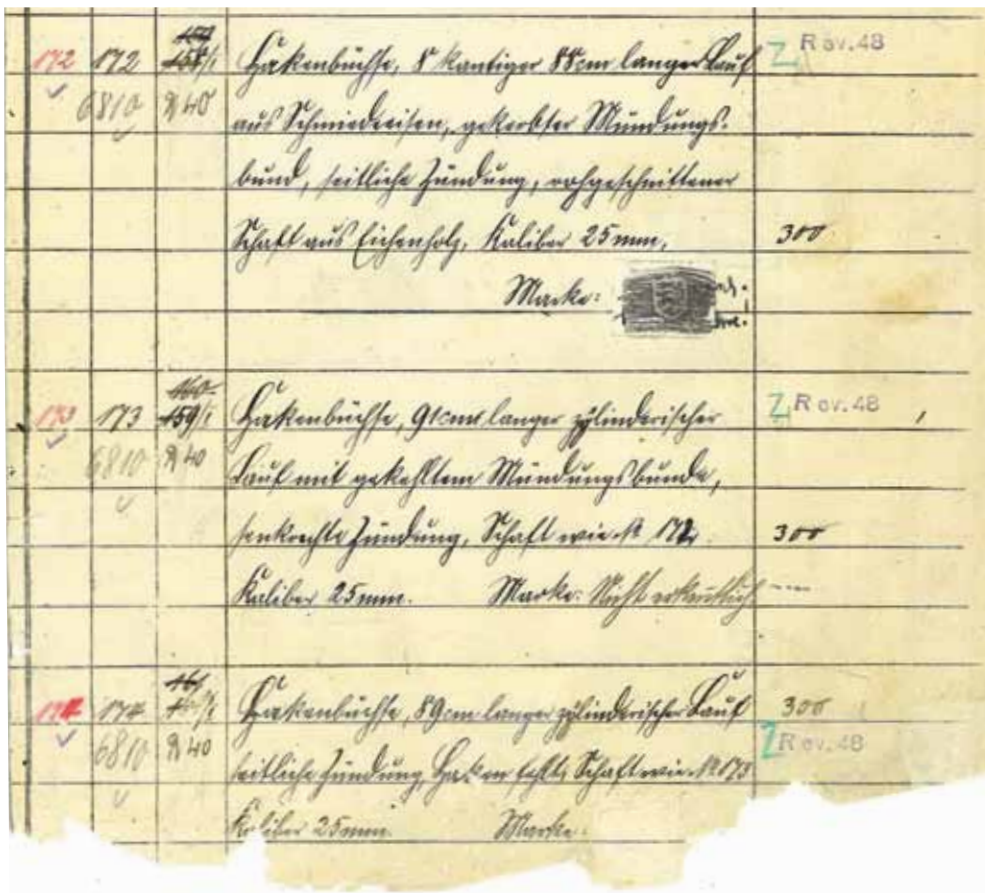 172 172 158/1 Hakenbüchse, 8 kantiger 88cm langer Lauf Z Rev. 48
6810 R40 aus Schmiedeeisen, gekerbter Mündungs-
bund, seitliche Zündung, rohgeschnittener
Schaft aus Eichenholz, Kaliber 25 mm, 300
Marke:
160
173 173 159/1 Hakenbüchse, 91cm langer zylinderischer Z Rev. 48
6810 R40 Lauf mit gekehltem Mündungsbunde,
senkrechte Zündung, Schaft wie № 172. 300
Kaliber 25mm. Marke: Nicht erkentlich
161
174 174 Hakenbüchse, 89cm langer zylinderischer Lauf 300
6810 R40 seitliche Zündung, Haken fehlt, Schaft wie № 173 Z Rev. 48
Kaliber 25mm. Marke: